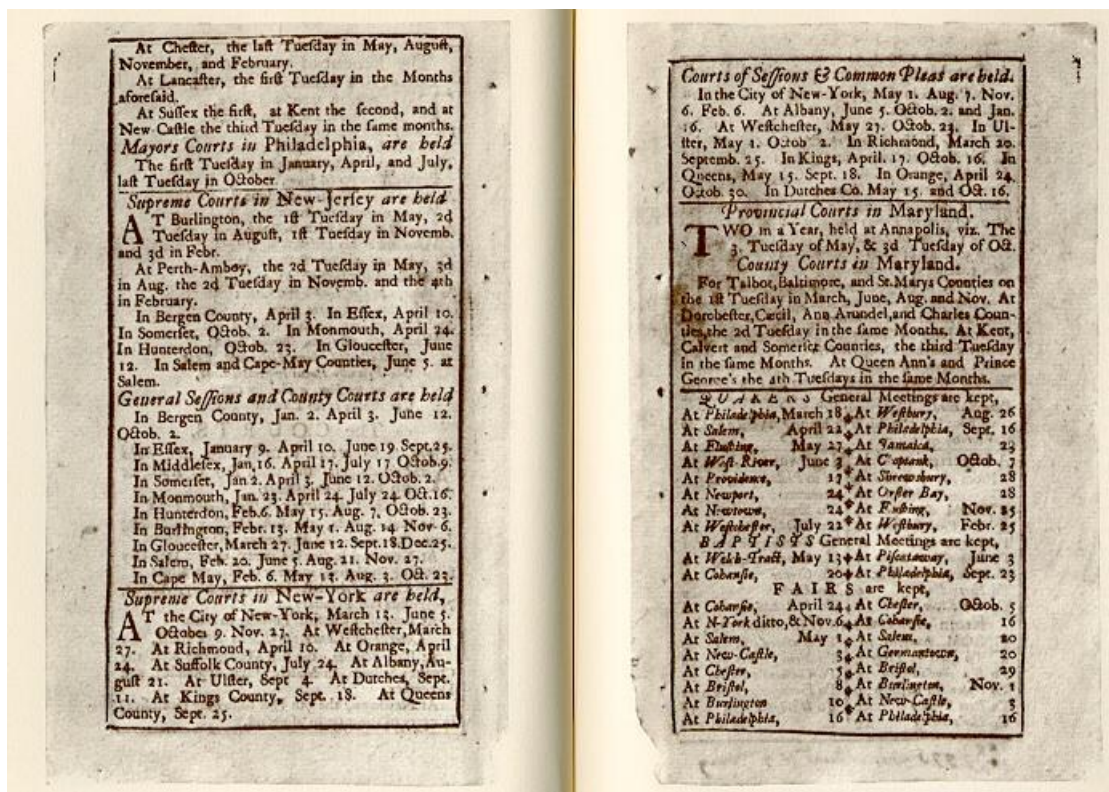 At Cheſter, the laſt Tueſday in May, Auguſt,
November, and February.
At Lancaſter, the firſt Tueſday in the Months
aforeſaid.
At Suſſex the firſt, at Kent the ſecond, and at
New-Caſtle the third Tueſday in the ſame months.
Mayors Courts in Philadelphia, are held
The firſt Tueſday in January, April, and July,
laſt Tueſday in October.
Supreme Courts in New-Jerſey are held
AT Burlington, the 1ſt Tueſday in May, 2d
Tueſday in Auguſt, 1ſt Tueſday in Novemb.
and 3d in Febr.
At Perth-Amboy, the 2d Tueſday in May, 3d
in Aug. the 2d Tueſday in Novemb. and the 4th
in February.
In Bergen County, April 3. In Eſſex, April 10.
In Somerſet, Octob. 2. In Monmouth, April 24.
In Hunterdon, Octob. 23. In Glouceſter, June
12. In Salem and Cape-May Counties, June 5. at
Salem.
General Seſſions and County Courts are held
In Bergen County, Jan. 2. April 3. June 12.
Octob. 2.
In Eſſex, January 9. April 10. June 19. Sept. 25.
In Middleſex, Jan. 16. April 17. July 17 Octob. 9.
In Somerſet, Jan 2. April 3. June 12. Octob. 2.
In Monmouth, Jan. 23. April 24. July 24. Oct. 16.
In Hunterdon, Feb. 6. May 15. Aug. 7. Octob. 23.
In Burlington, Febr. 13. May 1. Aug. 14. Nov. 6.
In Glouceſter, March 27. June 12. Sept. 18. Dec. 25.
In Salem, Feb. 20. June 5. Aug. 21. Nov. 27.
In Cape May, Feb. 6. May 13. Aug. 3. Oct. 23.
Supreme Courts in New-York are held,
AT the City of New-York, March 13. June 5.
Octobes 9. Nov. 27. At Weſtcheſter, March
27. At Richmond, April 10. At Orange, April
24. At Suffolk County, July 24. At Albany, Au-
guſt 21. At Ulſter, Sept 4. At Dutches, Sept.
11. At Kings County, Sept. 18. At Queens
County, Sept. 25.
Courts of Seſſions & Common Pleas are held.
In the City of New-York, May 1. Aug. 7. Nov.
6. Feb. 6. At Albany, June 5. Octob. 2. and Jan.
16. At Weſtcheſter, May 27. Octob. 23. In Ul-
ſter, May 1. Octob 2. In Richmond, March 20.
Septemb. 25. In Kings, April. 17. Octob. 16. In
Queens, May 15. Sept. 18. In Orange, April 24.
Octob. 30. In Dutches Co. May 15. and Oct. 16.
Provincial Courts in Maryland.
TWO in a Year, held at Annapolis, viz. The
3. Tueſday of May, & 3d Tueſday of Oct.
County Courts in Maryland.
For Talbot, Baltimore, and St. Marys Counties on
the 1ſt Tueſday in March, June, Aug. and Nov. At
Dorcheſter, Cæcil, Ann Arundel, and Charles Coun-
ties, the 2d Tueſday in the ſame Months. At Kent,
Calvert and Somerſet Counties, the third Tueſday
in the ſame Months. At Queen Ann's and Prince
George's the 4th Tueſdays in the ſame Months.
QUAKERS General Meetings are kept,
At Philadelphia, March 18 At Weſtbury, Aug. 26
At Salem, April 22 At Philadelphia, Sept. 16
At Fluſhing, May 27 At Jamaica, 23
At Weſt-River, June 3 At Coptank, Octob. 7
At Providence, 17 At Shrewsbury, 28
At Newport, 24 At Oyſter Bay, 28
At Newtown, 24 At Fluſhing, Nov. 25
At Weſtcheſter, July 22 At Weſtbury, Febr. 25
BAPTISTS General Meetings are kept,
At Welch-Tract, May 13 At Piſcataway, June 3
At Cohanſie, 20 At Philadelphia, Sept. 23
FAIRS are kept,
At Cohanſie, April 24 At Cheſter, Octob. 5
At N-York ditto, & Nov. 6 At Cohanſie, 16
At Salem, May 1 At Salem, 20
At New-Caſtle, 3 At Germantown, 20
At Cheſter, 5 At Briſtol, 29
At Briſtol, 8 At Burlington, Nov. 1
At Burlington 10 At New-Caſtle, 3
At Philadelphia, 16 At Philadelphia, 16